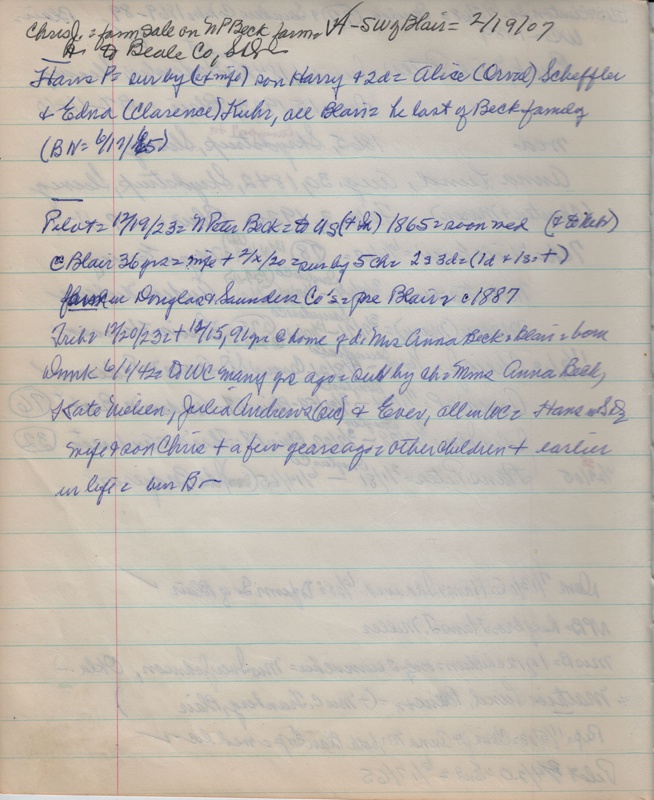 Chris J. = farm sale on NP Beck farm = A - SW of Blair = 2/19/07
to Beale Co, S.D.
Hans P = sur by (+ wife) son Harry & 2d = Alice (Orval) Scheffler
& Edna (Clarence) Kuhr, all Blair = he last of Beck family
(BN = 6/17/65)
Pilot = 12/19/23 = N Peter Beck = to US (+ ) 1865 = soon wed (& to Nebr)
@ Blair 36 yrs = wife + 2/x/20 = sur by 5 ch = 2s 3d = (1d + 1s +)
farm in Douglas & Saunders Co's = pre Blair c 1887
Trib = 12/20/23 = + 12/15, 91 yr @ home of d: Mrs Anna Beck = Blair = born
Dnmk 6/1/42 = to WC many yrs ago = sur by ch = Mmes Anna Beck,
Kate Nielsen, Julia Andrews (sic) & Ever, all in WC = Hans in S.D.
wife & son Chris + a few years ago = other children + earlier
in life = bur B